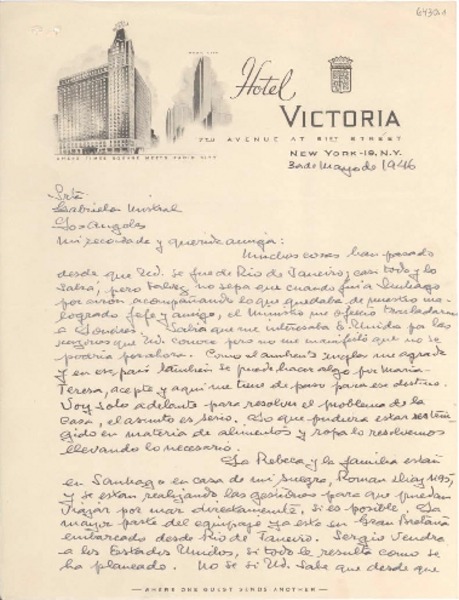 64301
RADIO CITY
Hotel
VICTORIA
7TH AVENUE AT 51ST STREET
WHERE TIMES SQUARE MEETS RADIO CITY
NEW YORK-19, N.Y.
3 de Mayo de 1946
Srta
Gabriela Mistral
Los Angeles
Mi recordada y querida amiga:
Muchas cosas han pasado
desde que Ud. se fue de Rio de Janeiro; casi todo y lo
sabrá, pero talvez no sepa que cuando fui a Santiago
por avion acompañando lo que quedaba de nuestro ma-
logrado jefe y amigo, el Ministro me ofreció trasladarme
a Londres. Sabia que me interesaba E. Unidos por las
razones que Ud. conoce pero no me manifestó que no se
podria por ahora. Como el ambiente ingles me agrada
y en ese pais tambien se puede hacer algo por Maria
Teresa, acepté y aqui me tiene de paso para ese destino.
Voy solo adelante para resolver el problema de la
casa, el asunto es serio. Lo que pudiera estar restrin-
gido en materia de alimentos y ropa lo resolvemos
llevando lo necesario.
La Rebeca y la familia están
en Santiago en casa de mi suegro, Roman Diaz 1195,
y se estan realizando las gestiones para que puedan
viajar por mar directamente, si es posible. La
mayor parte del equipaje ya esta en Gran Bretaña
embarcado desde Rio de Janeiro. Sergio vendra
a los Estados Unidos, si todo le resulta como se
ha planeado. No se si Ud. sabe que desde que
WHERE ONE GUEST SENDS ANOTHER